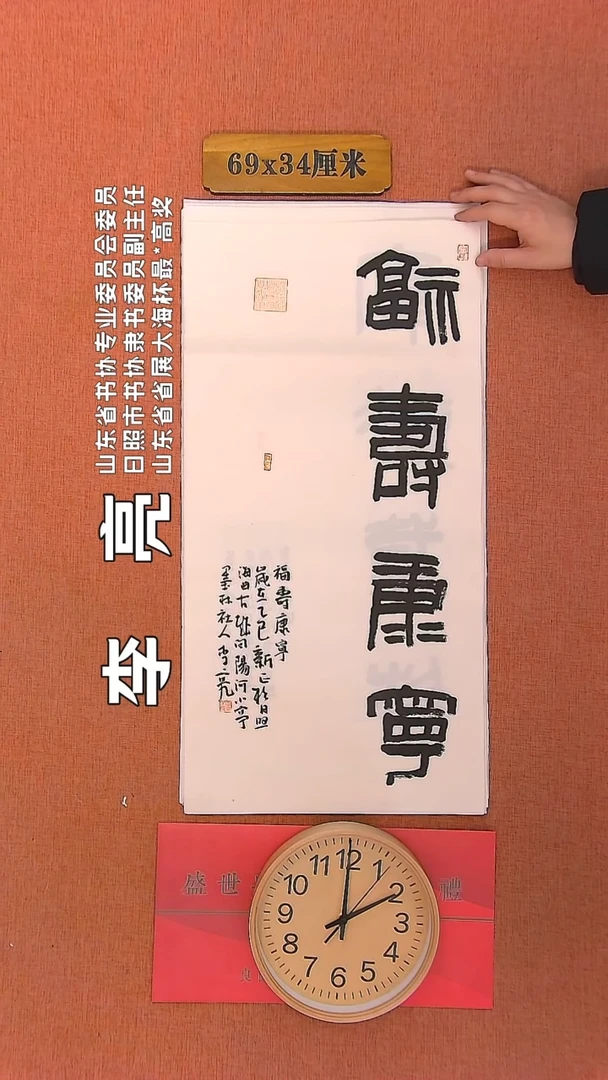 69x34厘米
山东省书协专业委员会委员
日照市书协隶书委员副主任
山东省省展大海杯最*高奖
李亮
福
壽
康
寧
福壽康寧
歲在乙巳新正於日照
墨林社人李亮
盛世
禮
11 12 1
10 2
9 3
8 4
7 6 5